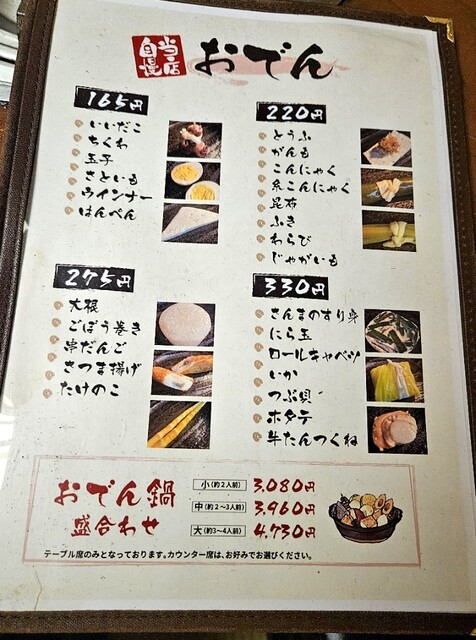 当店自慢 おでん
165円
いいだこ
ちくわ
玉子
さといも
ウインナー
はんぺん
220円
とうふ
がんも
こんにゃく
糸こんにゃく
昆布
ふき
わらび
じゃがいも
275円
大根
ごぼう巻き
串だんご
さつま揚げ
たけのこ
330円
さんまのすり身
にら玉
ロールキャベツ
いか
つぶ貝
ホタテ
牛たんつくね
おでん鍋
盛合わせ
小(約2人前) 3,080円
中(約2~3人前) 3,960円
大(約3~4人前) 4,730円
テーブル席のみとなっております。カウンター席は、お好みでお選びください。